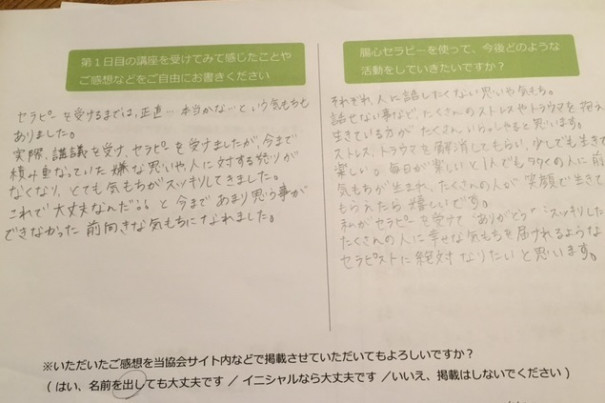 第1日目の講座を受けてみて感じたことや
ご感想などをご自由にお書きください
セラピーを受けるまでは、正直…本当かな…という気もちも
ありました。
実際、講議を受け、セラピーを受けましたが、今まで
積み重なっていた嫌な思いや人に対する怒りが
なくなり、とても気もちがスッキリしてきました。
これで大丈夫なんだ と今まであまり思う事が
できなかった前向きな気もちになれました。
腸心セラピーを使って、今後どのような
活動をしていきたいですか?
それぞれ人に話したくない思いや気もち。
話せない事など、たくさんのストレスやトラウマを抱え
生きている方がたくさんいらっしゃると思います。
ストレス、トラウマを解消してもらい、少しでも生き
楽しい。毎日が楽しいと1人でも多くの人に前
気もちが生まれ、たくさんの人が笑顔で生きて
もらえたら嬉しいです。
私がセラピーを受けて"ありがとう""スッキリした
たくさんの人に幸せな気もちを届けれるような
セラピストに絶対なりたいと思います。
※いただいたご感想を当協会サイト内などで掲載させていただいてもよろしいですか?
( はい、名前を出しても大丈夫です / イニシャルなら大丈夫です /いいえ、掲載はしないでください )